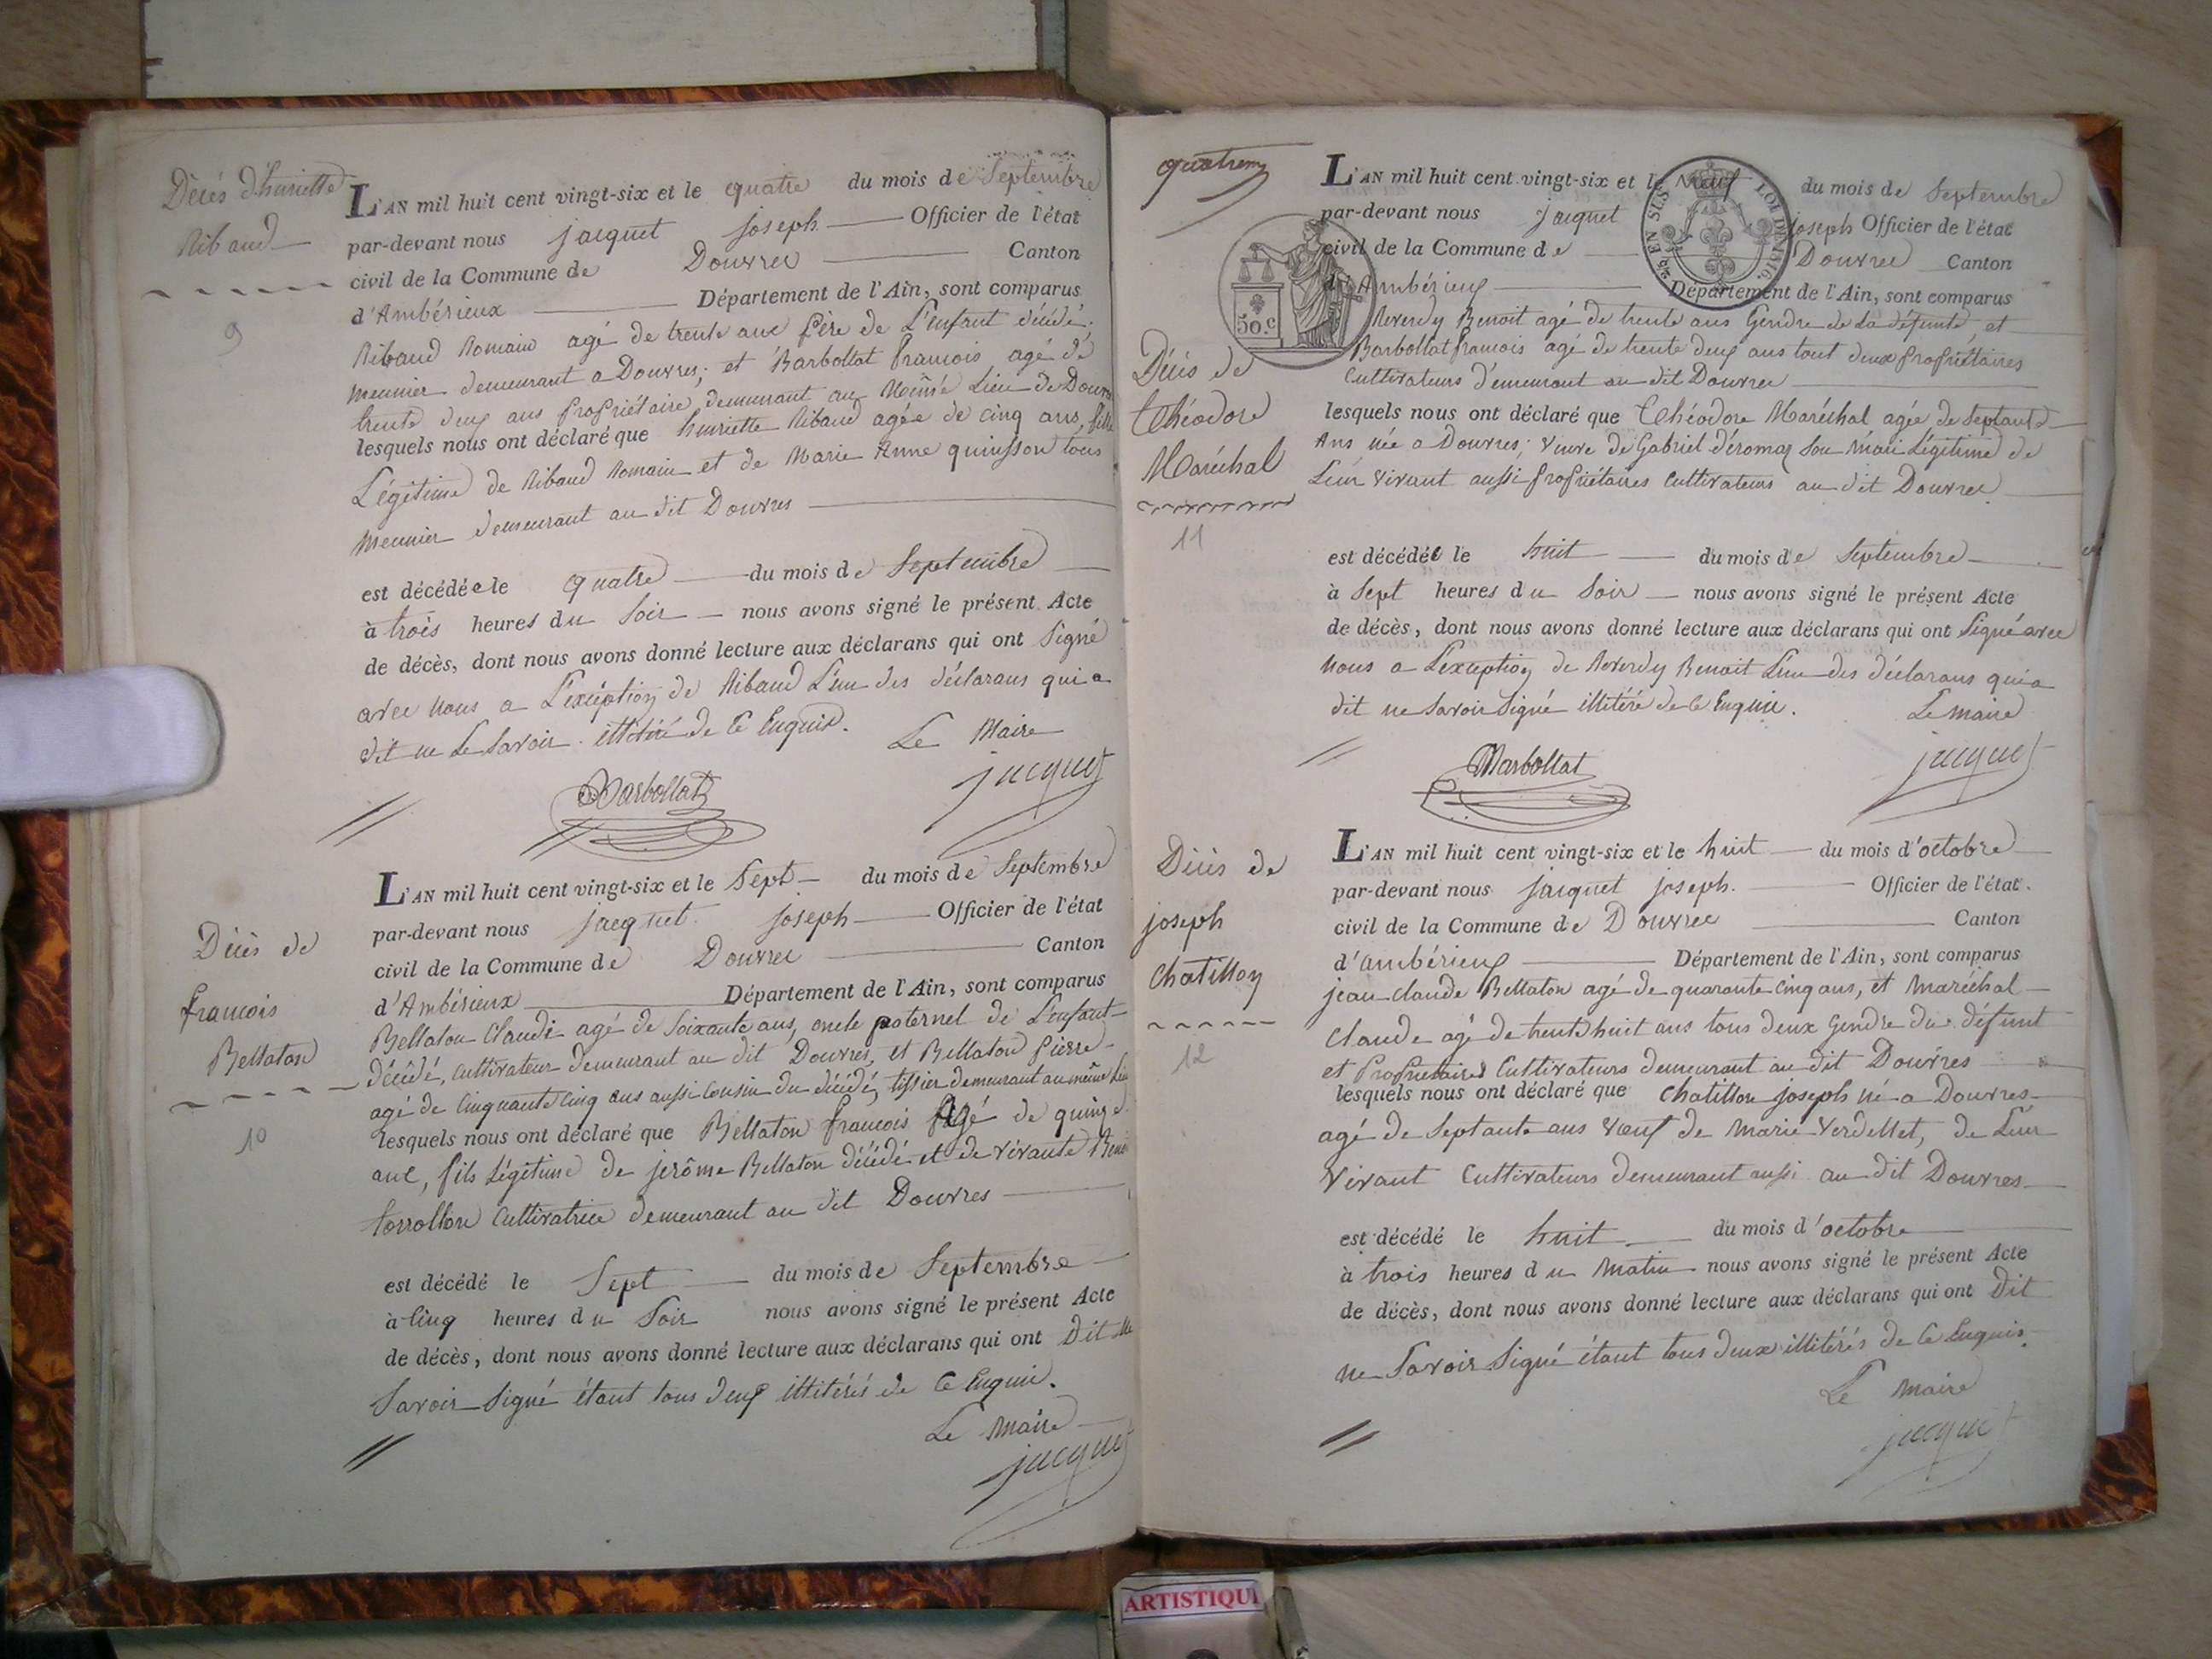 Décès d'huriette
Ribaud
9
L'AN mil huit cent vingt-six et le quatre du mois de Septembre
par-devant nous jacquet joseph Officier de l'état
civil de la Commune de Douvres Canton
d'Ambérieux Département de l'Ain, sont comparus
Ribaud Romain agé de trente ans père de L'enfant décédé.
Meunier demeurant a Douvres; et Barbollat francois agé de
trente deux ans propriétaire demeurant au Même Lieu de Douvres
lesquels nous ont déclaré que huriette Ribaud agée de cinq ans, fille
Légitime de Ribaud Romain et de Marie Anne quinsson tous
Meunier demeurant au dit Douvres
est décédée le quatre du mois de Septembre
à trois heures du Soir nous avons signé le présent Acte
de décès, dont nous avons donné lecture aux déclarans qui ont Signé
avec Nous a L'exception de Ribaud L'un des déclarans qui a
dit ne Le Savoir. illitiré de ce Enquis.
Le Maire
Barbollat
jacquet
Décès de
francois
Bellaton
10
L'AN mil huit cent vingt-six et le Sept du mois de Septembre
par-devant nous jacquet joseph Officier de l'état
civil de la Commune de Douvres Canton
d'Ambérieux Département de l'Ain, sont comparus
Bellaton Claude agé de Soixante ans, oncle paternel de L'enfant
décédé, cultivateur demeurant au dit Douvres, et Bellaton pierre
agé de Cinquante cinq ans aussi Cousin du décédé, tissier demeurant au même Lieu
lesquels nous ont déclaré que Bellaton francois Agé de quinze
ans, fils Légitime de jerôme Bellaton décédé et de vivante
Cultivatrice demeurant au dit Douvres
est décédé le Sept du mois de Septembre
à Cinq heures du Soir nous avons signé le présent Acte
de décès, dont nous avons donné lecture aux déclarans qui ont Dit ne
Savoir Signé étant tous deux illitérés de Ce Enquis.
Le Maire
jacquet
quatrem
L'AN mil huit cent vingt-six et le neuf du mois de Septembre
par-devant nous jacquet joseph Officier de l'état
civil de la Commune de Douvres Canton
d'Ambérieux Département de l'Ain, sont comparus
EN SUS
LOI DE 1816.
50.c
Reverdy Benoit agé de trente ans Gendre de La défunte, et
Barbollat francois agé de trente deux ans tout deux propriétaires
Cultivateurs demeurant au dit Douvres
Décès de
Théodore
Maréchal
11
lesquels nous ont déclaré que Théodore Maréchal agée de Septante
Ans née a Douvres; Veuve de Gabriel déromas Son Mari Légitime de
Leur Vivant aussi propriétaires Cultivateurs au dit Douvres
est décédée le huit du mois de Septembre
à Sept heures du Soir nous avons signé le présent Acte
de décès, dont nous avons donné lecture aux déclarans qui ont Signé avec
Nous a L'exception de Reverdy Benoit L'un des déclarans qui a
dit ne Savoir Signé illitéré de Ce Enquis.
Le Maire
Barbollat
jacquet
Décès de
joseph
Chatillon
12
L'AN mil huit cent vingt-six et le huit du mois d'octobre
par-devant nous jacquet joseph. Officier de l'état
civil de la Commune de Douvres Canton
d'ambérieux Département de l'Ain, sont comparus
jean claude Bellaton agé de quarante cinq ans, et Maréchal
Claude agé de trente huit ans tous deux Gendre du défunt
et Propriétaires Cultivateurs demeurant au dit Douvres
lesquels nous ont déclaré que Chatillon joseph né a Douvres
agé de Septante ans Veuf de Marie Verdellet, de Leur
Vivant Cultivateurs demeurant aussi au dit Douvres
est décédé le huit du mois d'octobre
à trois heures du Matin nous avons signé le présent Acte
de décès, dont nous avons donné lecture aux déclarans qui ont Dit
ne Savoir Signé étant tous deux illitérés de Ce Enquis.
Le Maire
jacquet
ARTISTIQU